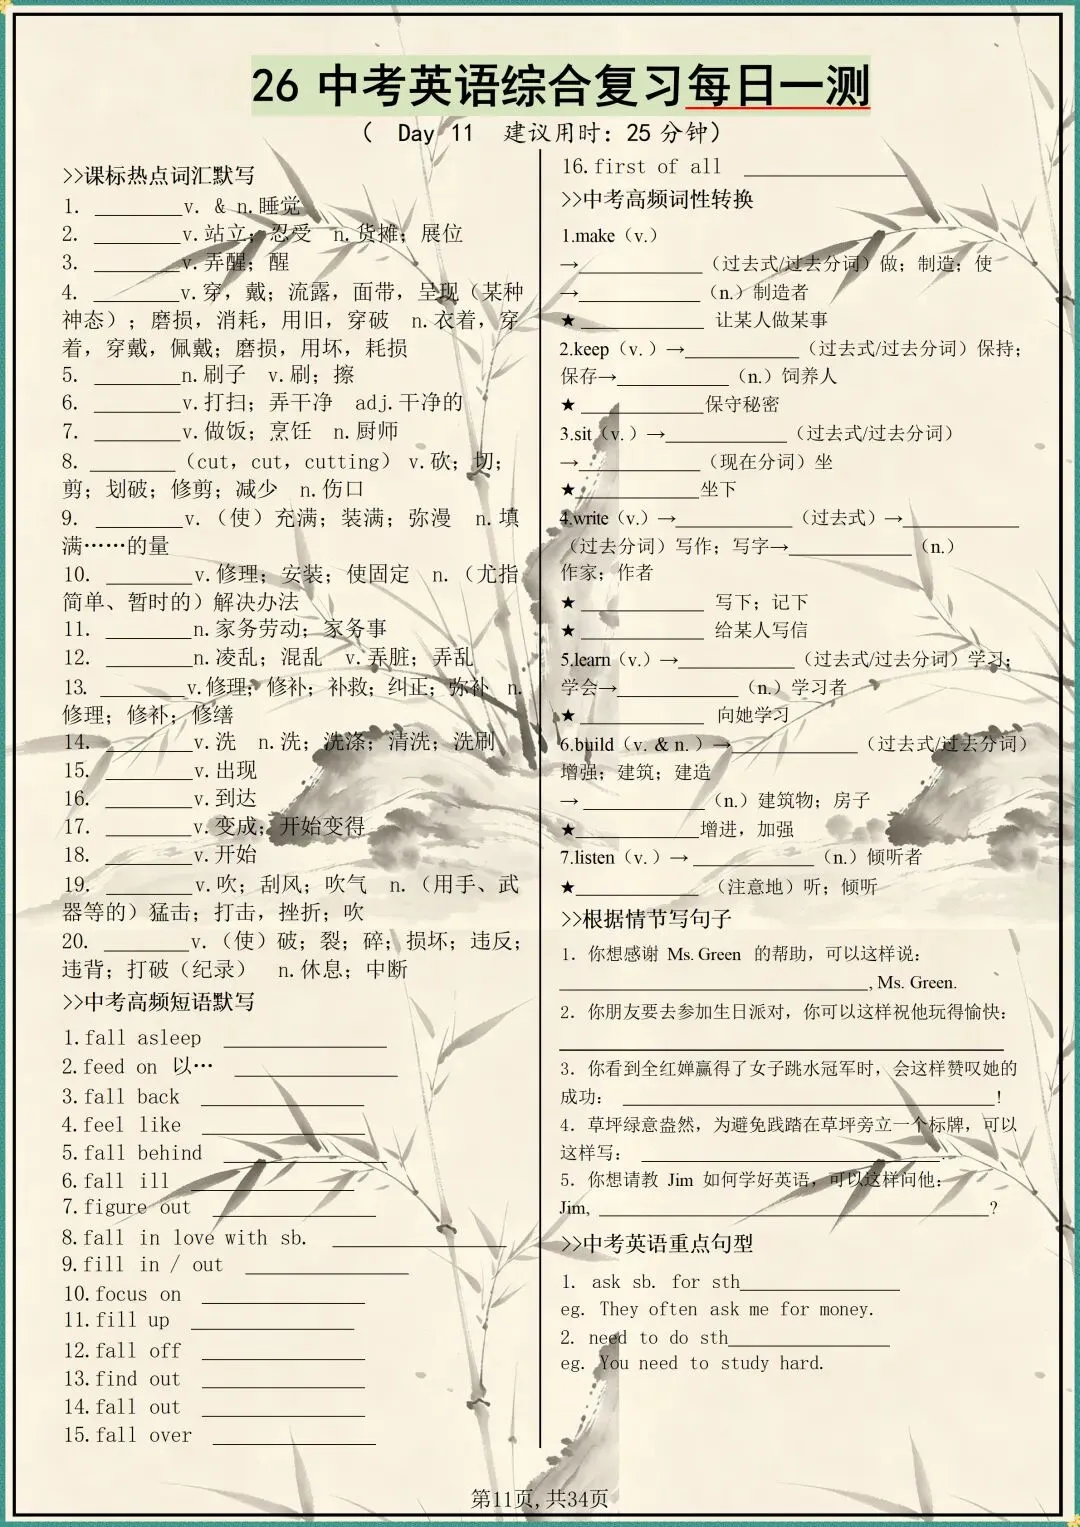 26 中考英语综合复习每日一测
( Day 11 建议用时：25 分钟)
>>课标热点词汇默写
1. ________v. & n.睡觉
2. ________v.站立；忍受 n.货摊；展位
3. ________v.弄醒；醒
4. ________v.穿，戴；流露，面带，呈现（某种
神态）；磨损，消耗，用旧，穿破 n.衣着，穿
着，穿戴，佩戴；磨损，用坏，耗损
5. ________n.刷子 v.刷；擦
6. ________v.打扫；弄干净 adj.干净的
7. ________v.做饭；烹饪 n.厨师
8. ________（cut, cut, cutting）v.砍；切；
剪；划破；修剪；减少 n.伤口
9. ________v.（使）充满；装满；弥漫 n.填
满……的量
10. ________v.修理；安装；使固定 n.（尤指
简单、暂时的）解决办法
11. ________n.家务劳动；家务事
12. ________n.凌乱；混乱 v.弄脏；弄乱
13. ________v.修理；修补；补救；纠正；弥补 n.
修理；修补；修缮
14. ________v.洗 n.洗；洗涤；清洗；洗刷
15. ________v.出现
16. ________v.到达
17. ________v.变成；开始变得
18. ________v.开始
19. ________v.吹；刮风；吹气 n.（用手、武
器等的）猛击；打击，挫折；吹
20. ________v.（使）破；裂；碎；损坏；违反；
违背；打破（纪录） n.休息；中断
>>中考高频短语默写
1.fall asleep _______________
2.feed on 以… _______________
3.fall back _______________
4.feel like _______________
5.fall behind _______________
6.fall ill _______________
7.figure out _______________
8.fall in love with sb. ________________
9.fill in / out _______________
10.focus on _______________
11.fill up _______________
12.fall off _______________
13.find out _______________
14.fall out _______________
15.fall over _______________
16.first of all _______________
>>中考高频词性转换
1.make（v.）
→_____________（过去式/过去分词）做；制造；使
→_____________（n.）制造者
★ _____________ 让某人做某事
2.keep（v. ）→____________（过去式/过去分词）保持；
保存→____________（n.）饲养人
★ _____________保守秘密
3.sit（v. ）→_____________（过去式/过去分词）
→_____________（现在分词）坐
★_____________坐下
4.write（v.）→____________（过去式）→____________
（过去分词）写作；写字→_____________（n.）
作家；作者
★ _____________ 写下；记下
★ _____________ 给某人写信
5.learn（v.）→____________（过去式/过去分词）学习；
学会→_____________（n.）学习者
★ _____________ 向她学习
6.build（v. & n. ）→_____________（过去式/过去分词）
增强；建筑；建造
→ _____________（n.）建筑物；房子
★_____________增进，加强
7.listen（v. ）→ _____________（n.）倾听者
★_____________ （注意地）听；倾听
>>根据情节写句子
1. 你想感谢 Ms. Green 的帮助，可以这样说：
________________________________, Ms. Green.
2. 你朋友要去参加生日派对，你可以这样祝他玩得愉快：
______________________________________________
3. 你看到全红婵赢得了女子跳水冠军时，会这样赞叹她的
成功： ________________________________________!
4. 草坪绿意盎然，为避免践踏在草坪旁立一个标牌，可以
这样写： ______________________________.
5. 你想请教 Jim 如何学好英语，可以这样问他：
Jim, ________________________________________?
>>中考英语重点句型
1. ask sb. for sth_______________
eg. They often ask me for money.
2. need to do sth_______________
eg. You need to study hard.
第11页,共34页